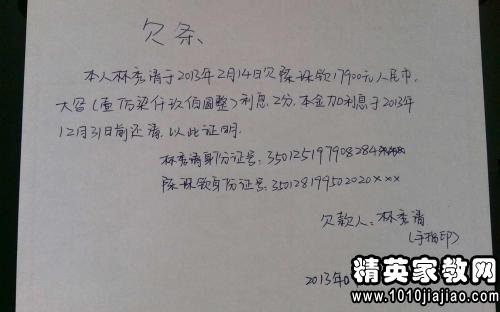 欠条
本人林秀清于2013年2月14日欠陈珠钦17900元人民币,
大写(壹万柒仟玖佰圆整)利息2分,本金加利息于2013年
12月31日前还清,以此证明.
林秀清身份证号:350125197908284
陈珠钦身份证号:350128199502020×××
欠款人:林秀清
(手指印)
2013年
精英家教网
www.1010jiajiao.com